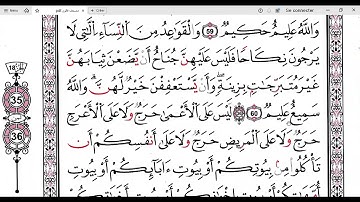 Se connecter
وَاللَّهُ عَلِيمٌ حَكِيمٌ ٥٩ وَالْقَوَاعِدُ مِنَ النِّسَاءِ الَّتِي لَا
يَرْجُونَ نِكَاحًا فَلَيْسَ عَلَيْهِنَّ جُنَاحٌ أَن يَضَعْنَ ثِيَابَهُنَّ
غَيْرَ مُتَبَرِّجَاتٍ بِزِينَةٍ وَأَن يَسْتَعْفِفْنَ خَيْرٌ لَّهُنَّ وَاللَّهُ
سَمِيعٌ عَلِيمٌ ٦٠ لَّيْسَ عَلَى الْأَعْمَى حَرَجٌ وَلَا عَلَى الْأَعْرَجِ
حَرَجٌ وَلَا عَلَى الْمَرِيضِ حَرَجٌ وَلَا عَلَى أَنفُسِكُمْ أَن
تَأْكُلُوا مِن بُيُوتِكُمْ أَوْ بُيُوتِ ءَابَائِكُمْ أَوْ بُيُوتِ
18
35
36